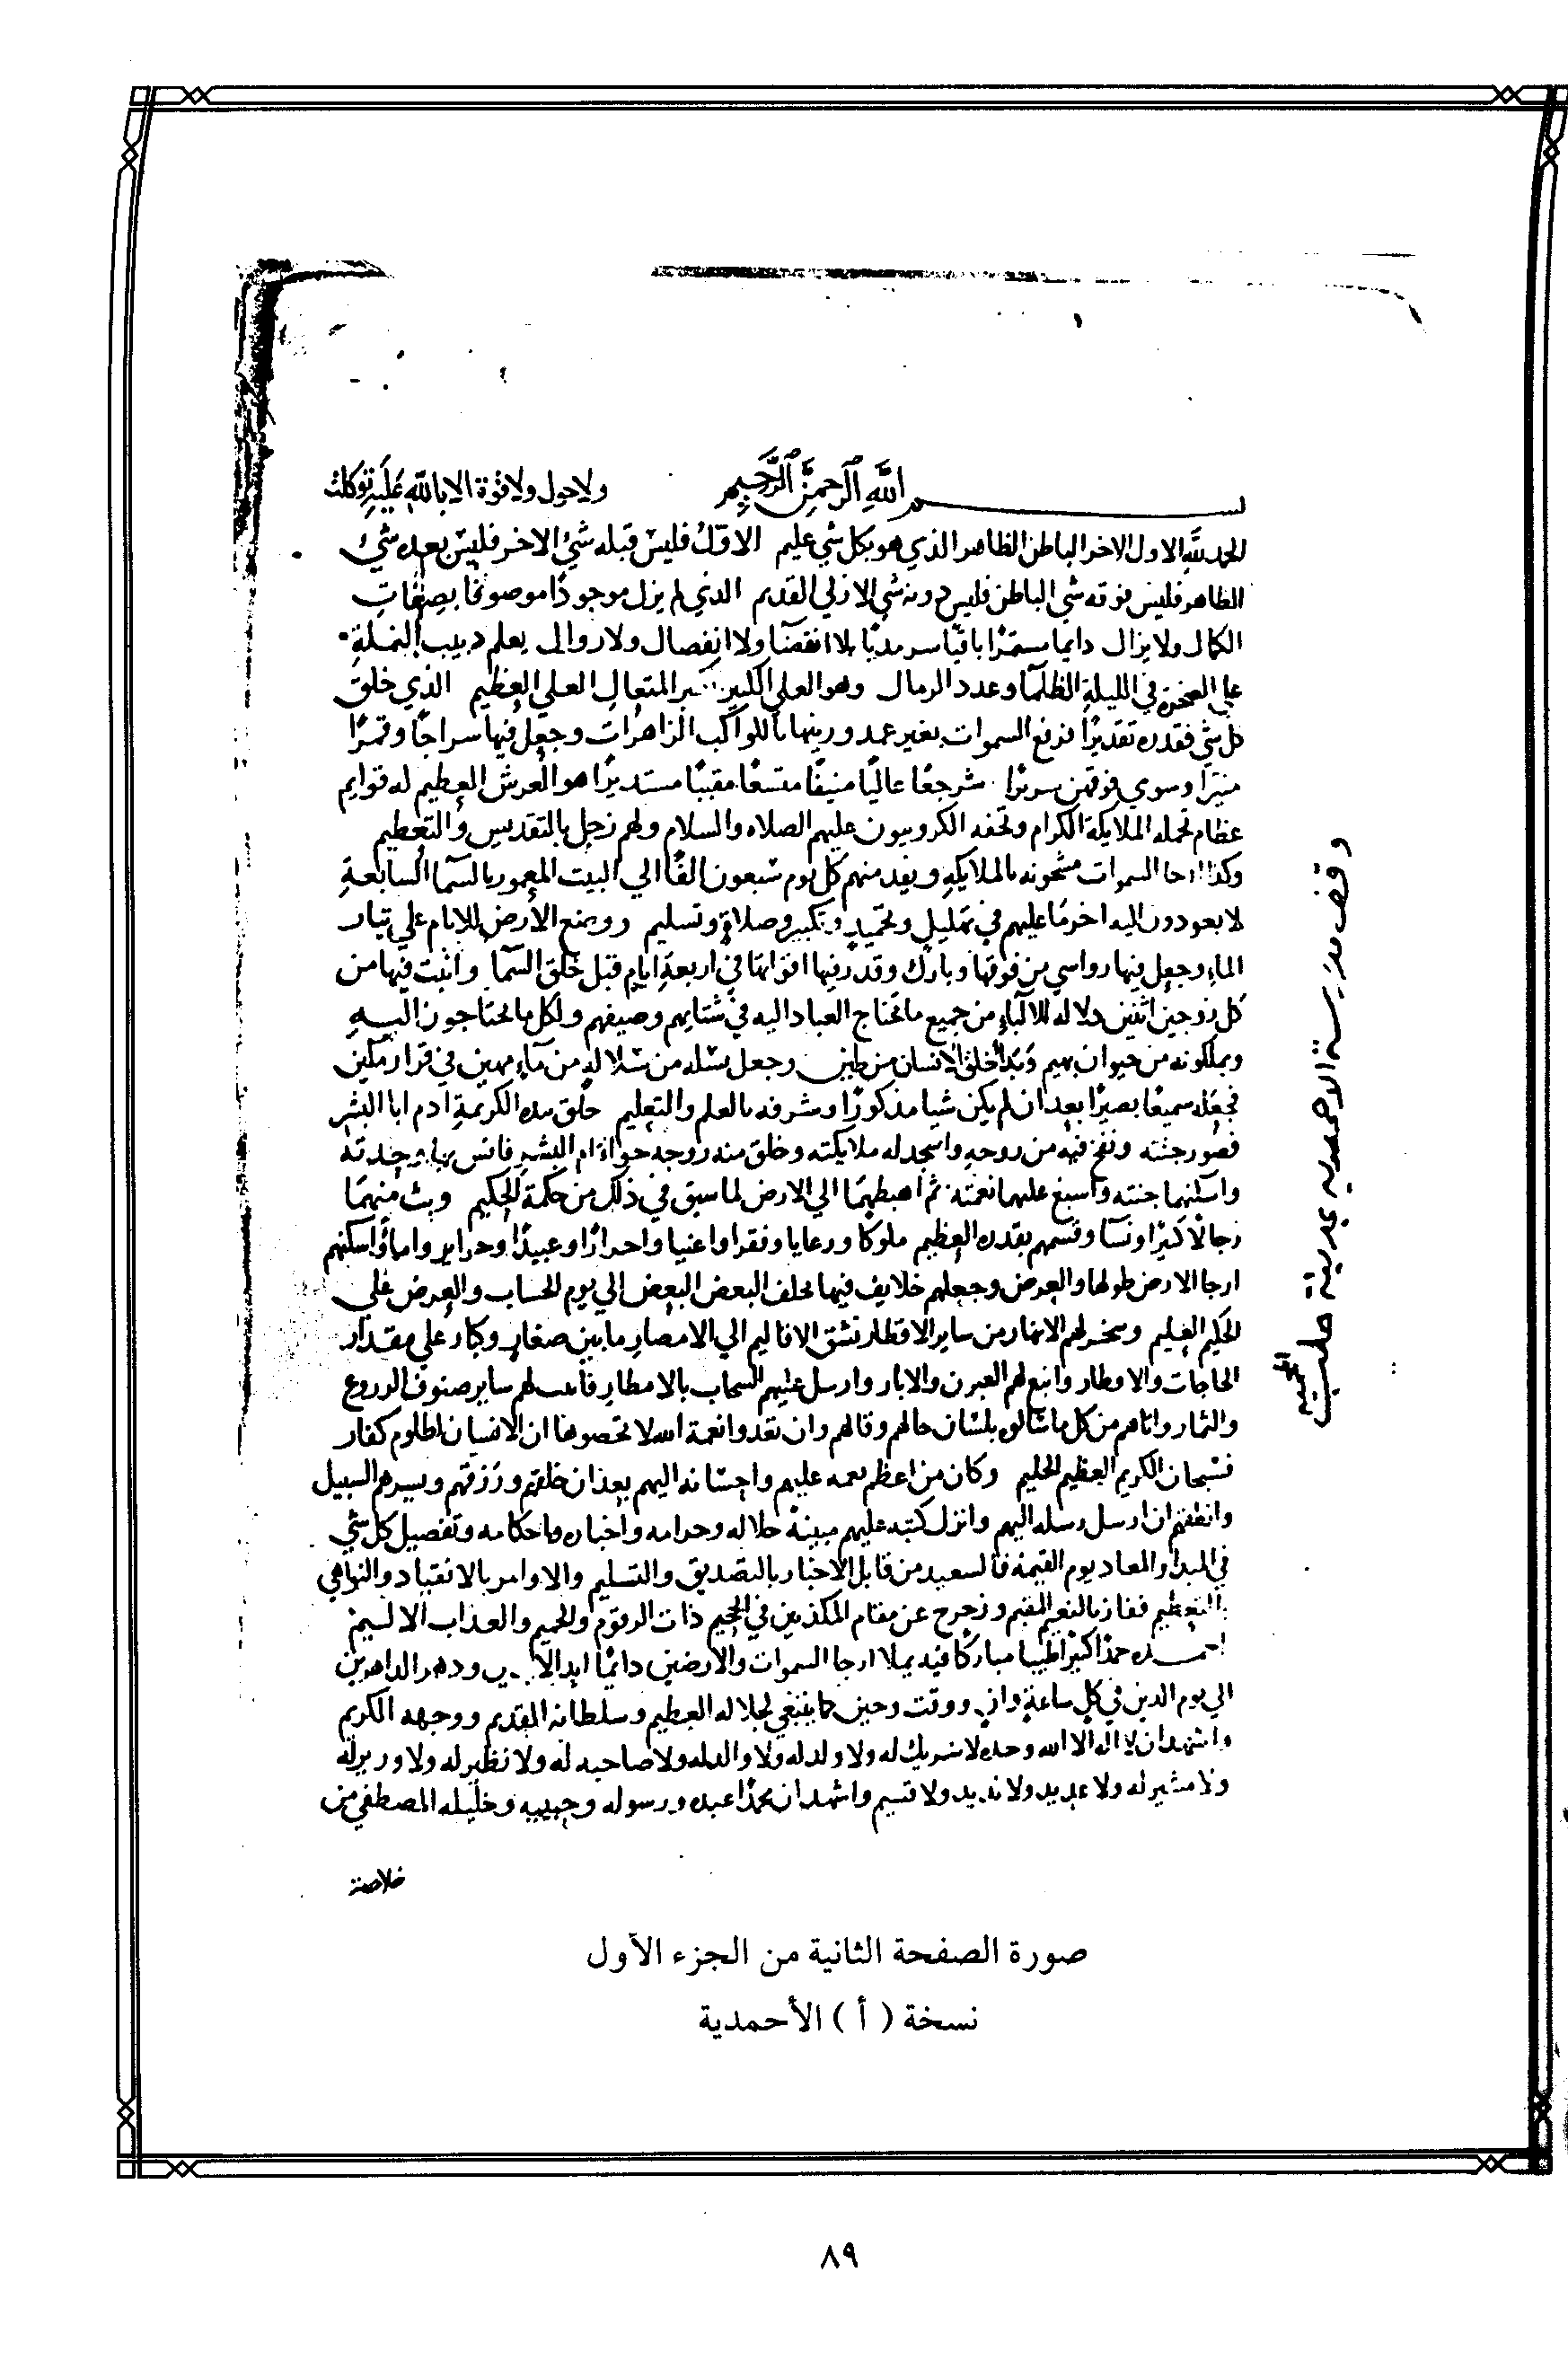 بسم الله الرحمن الرحيم ولا حول ولا قوة الا بالله عليه توكلت
الحمد لله الاول الاخر الباطن الظاهر الذي هو بكل شي عليم الاول فليس قبله شئ الاخر فليس بعده شئ
الظاهر فليس فوقه شي الباطن فليس دونه شي الازلي القديم الذي لم يزل موجودا موصوفا بصفات
الكمال ولا يزال دايما مستمرا باقيا سرمديا بلا انقضا ولا انفصال ولا زوال يعلم دبيب النملة
علي الصخرة في الليلة الظلما وعدد الرمال وهو العلي الكبير المتعال العلي العظيم الذي خلق
كل شي فقدره تقديرا ورفع السموات بغير عمد وزينها بالكواكب الزاهرات وجعل فيها سراجا وقمرا
منيرا وسوي فوقهن سريرا شرجعا عاليا منيفا متسعا مقببا مستديرا هو العرش العظيم له قوايم
عظام تحمله الملايكة الكرام وتحفه الكروبيون عليهم الصلاه والسلام ولهم زجل بالتقديس والتعظيم
وكذا ارجا السموات مشحونه بالملايكه ويفد منهم كل يوم سبعون الفا الي البيت المعمور بالسما السابعة
لا يعودون اليه اخر ما عليهم في تهليل وتحميد وتكبير وصلاة وتسليم ووضع الارض للانام علي تيار
الماء وجعل فيها رواسي من فوقها وبارك وقدر فيها اقواتها في اربعة ايام قبل خلق السما واثبت فيها من
كل زوجين اثنين دلاله للالباء من جميع ما يحتاج العباد اليه في شتايهم وصيفهم ولكل ما يحتاجون اليه
ويملكونه من حيوان بهيم وبدأ خلق الانسان من طين وجعل نسله من سلالة من ماء مهين في قرار مكين
فجعله سميعا بصيرا بعد ان لم يكن شيا مذكورا وشرفه بالعلم والتعليم خلق بيده الكريمة ادم ابا البشر
فصور جثته ونفخ فيه من روحه واسجد له ملايكته وخلق منه زوجه حواء ام البشر فانس بها وحدته
واسكنهما جنته واسبغ عليهما نعمته ثم اهبطهما الي الارض لما سبق في ذلك من حكمة الحكيم وبث منهما
رجالا كثيرا ونسا وقسمهم بقدره العظيم ملوكا ورعايا وفقرا واغنيا واحرارا وعبيدا وحراير واماء واسكنهم
ارجا الارض طولها والعرض وجعلهم خلايف فيها يخلف البعض البعض الي يوم الحساب والعرض علي
الحكيم العليم وسخر لهم الانهار من ساير الاقطار تشق الاقاليم الي الامصار ما بين صغار وكبار علي مقدار
الحاجات والاوطار وانبع لهم العيون والابار وارسل عليهم السحاب بالامطار فانبت لهم ساير صنوف الزروع
والثمار واتاهم من كل ما سالوه بلسان حالهم وقالهم وان تعدوا نعمة الله لا تحصوها ان الانسان لظلوم كفار
فسبحان الكريم العظيم الحليم وكان من اعظم نعمه عليهم واحسانه اليهم بعد ان خلقهم ورزقهم ويسر لهم السبيل
وانطقهم ان ارسل رسله اليهم وانزل كتبه عليهم مبينة حلاله وحرامه واخباره واحكامه وتفصيل كل شي
في المبدا والمعاد يوم القيمة فالسعيد من قابل الاخبار بالتصديق والتسليم والاوامر بالانقياد والنواهي
بالتعظيم ففاز بالنعيم المقيم وزحزح عن مقام المكذبين في الجحيم ذات الزقوم والحميم والعذاب الاليم
احمده حمدا كثيرا طيبا مباركا فيه يملا ارجا السموات والارضين دائما ابد الابدين ودهر الداهرين
الي يوم الدين في كل ساعة وان ووقت وحين كما ينبغي لجلاله العظيم وسلطانه القديم ووجهه الكريم
واشهد ان لا اله الا الله وحده لا شريك له ولا ولد له ولا والد له ولا صاحبه له ولا نظير له ولا وزير له
ولا مشير له ولا عديد ولا نديد ولا قسيم واشهد ان محمدا عبده ورسوله وحبيبه وخليله المصطفي من
خلاصة
وقف مدرسة الاحمديه بمدينة حلب
المحميه
صورة الصفحة الثانية من الجزء الأول
نسخة ( أ ) الأحمدية
٨٩